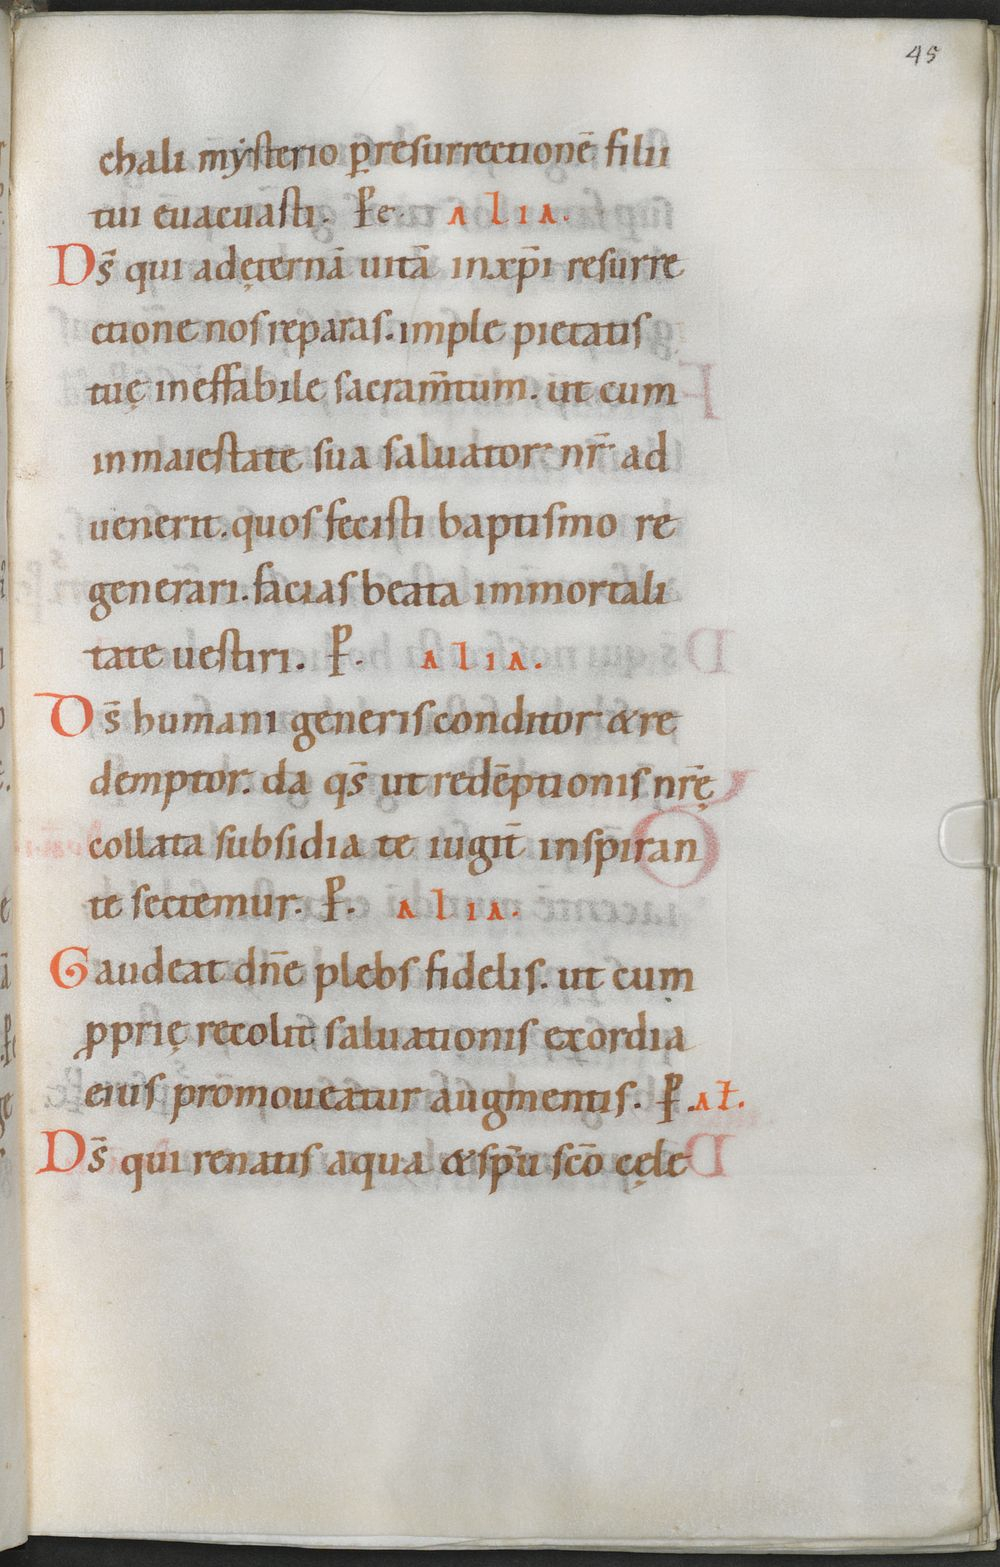 45
chali mẏsterio ꝑresurrectionē filii
tui euacuasti. P̲e. ALIA.
Ds̄ qui adęternā uitā inxp̄i resurre
ctione nos reparas. imple pietatis
tuę ineffabile sacram̄tum. ut cum
in maiestate sua saluator nr̄ ad
uenerit. quos fecisti baptismo re
generari. facias beata immortali
tate uestiri. P. ALIA.
Ds̄ humani generis conditor & re
demptor. da qs̄ ut redēptionis nr̄ę
collata subsidia te iugit̄ insp̄iran
te sectemur. P. ALIA.
Gaudeat dn̄e plebs fidelis. ut cum
ꝓprię recolit saluationis exordia
eius promoueatur augmentis. P. Al̄.
Ds̄ qui renatis aqua & sp̄u sc̄o cęle